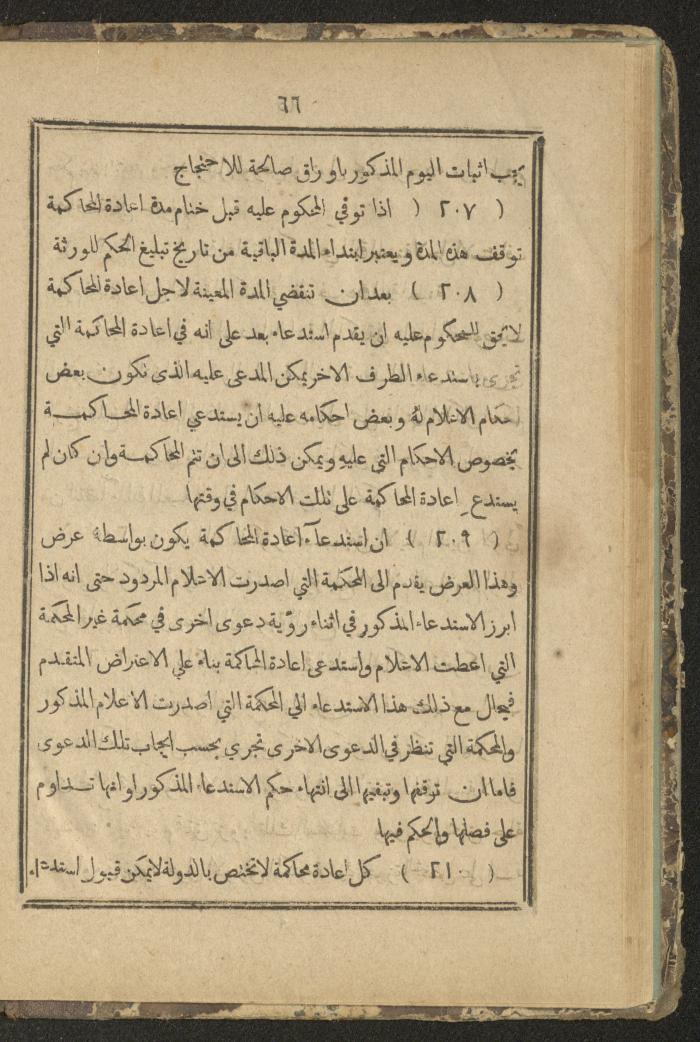 ٦٦
يجب اثبات اليوم المذكور باوراق صالحة للاحتجاج
( ٢٠٧ ) اذا توفي المحكوم عليه قبل ختام مدة اعادة المحاكمة
توقف هذه المدة ويعتبر ابتداء المدة الباقية من تاريخ تبليغ الحكم للورثة
( ٢٠٨ ) بعد ان تنقضي المدة المعينة لاجل اعادة المحاكمة
لا يحق للمحكوم عليه ان يقدم استدعاء بعد على انه في اعادة المحاكمة التي
تجرى باستدعاء الطرف الاخر يمكن المدعى عليه الذي تكون بعض
احكام الاعلام له وبعض احكامه عليه ان يستدعي اعادة المحاكمة
بخصوص الاحكام التي عليه ويمكن ذلك الى ان تتم المحاكمة وان كان لم
يستدع اعادة المحاكمة على تلك الاحكام في وقتها
( ٢٠٩ ) ان استدعآء اعادة المحاكمة يكون بواسطة عرض
وهذا العرض يقدم الى المحكمة التي اصدرت الاعلام المردود حتى انه اذا
ابرز الاستدعاء المذكور في اثناء رؤية دعوى اخرى في محكمة غير المحكمة
التي اعطت الاعلام واستدعى اعادة المحاكمة بناء على الاعتراض المتقدم
فيحال مع ذلك هذا الاستدعاء الى المحكمة التي اصدرت الاعلام المذكور
والمحكمة التي تنظر في الدعوى الاخرى تجري بحسب ايجاب تلك الدعوى
فاما ان توقفها وتبقيها الى انتهاء حكم الاستدعاء المذكور او انها تداوم
على فصلها والحكم فيها
( ٢١٠ ) كل اعادة محاكمة لا تختص بالدولة لا يمكن قبول استدعاء